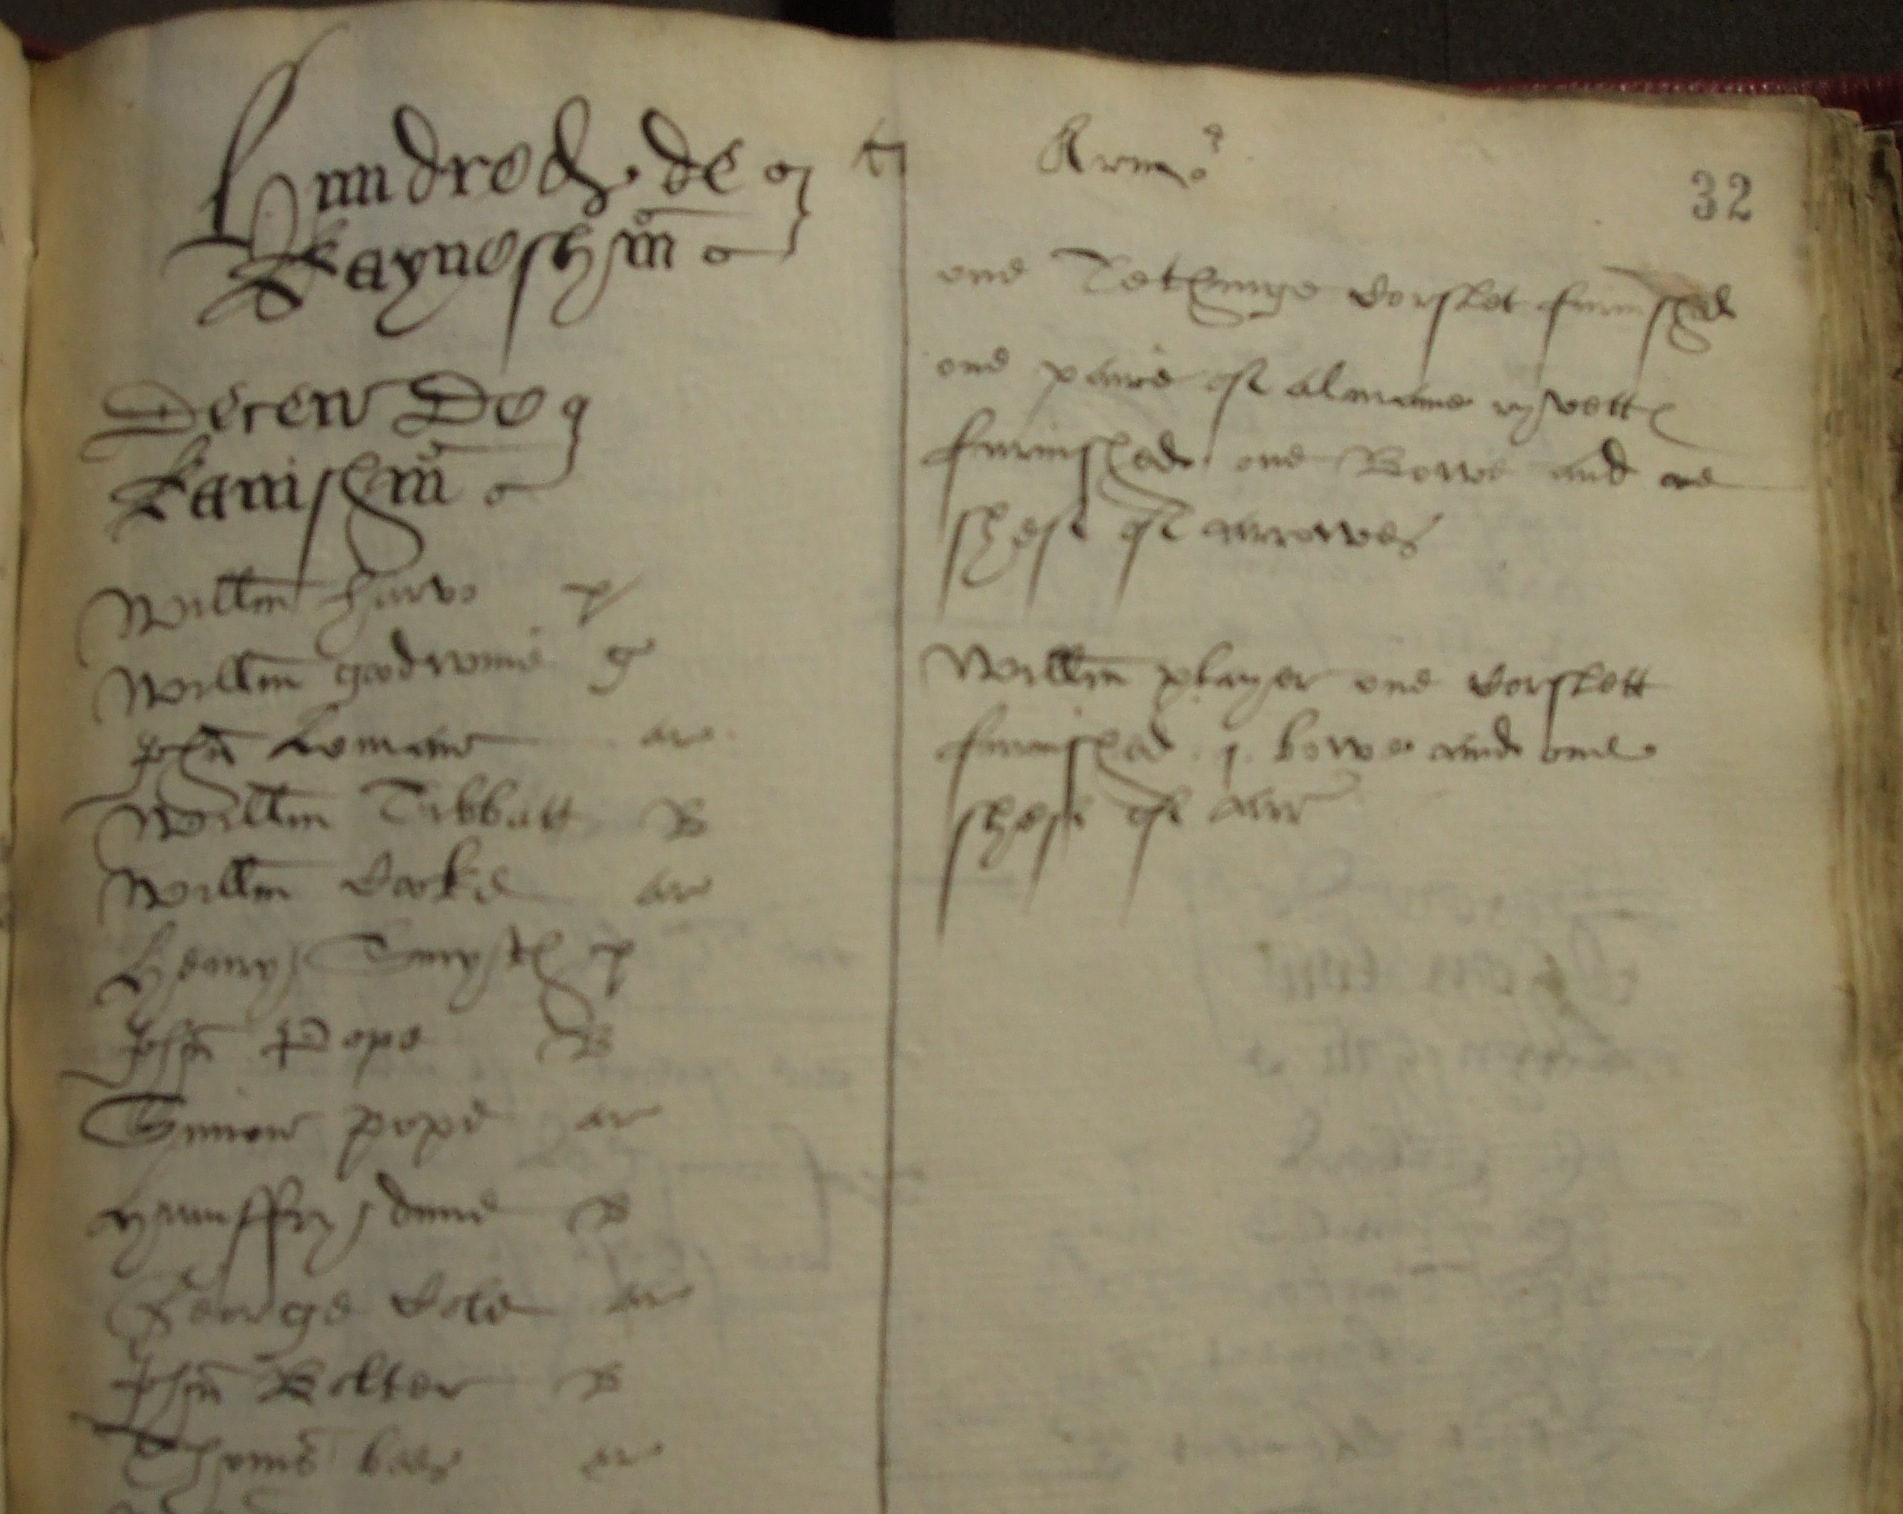 Hundred de
Kaynesh̃m
Decen De
Kanish̃m
Willm̃ harvo p
Willm̃ goodwine g
John Loman ar
Willm̃ Tibbatt B
Willm̃ Cooke ar
Henry Smyth p
John Pope B
Symon pope ar
humffry dune B
George Cole ar
John Bolter B
Thoms bees ar
Armo
32
one Tethinge Corslet furnished
one paire of almaine ryvett
furnished one Bowe and one
shefe of arrowes
Willm̃ player one Corslett
furnished . j . bowe and one
shefe of arr